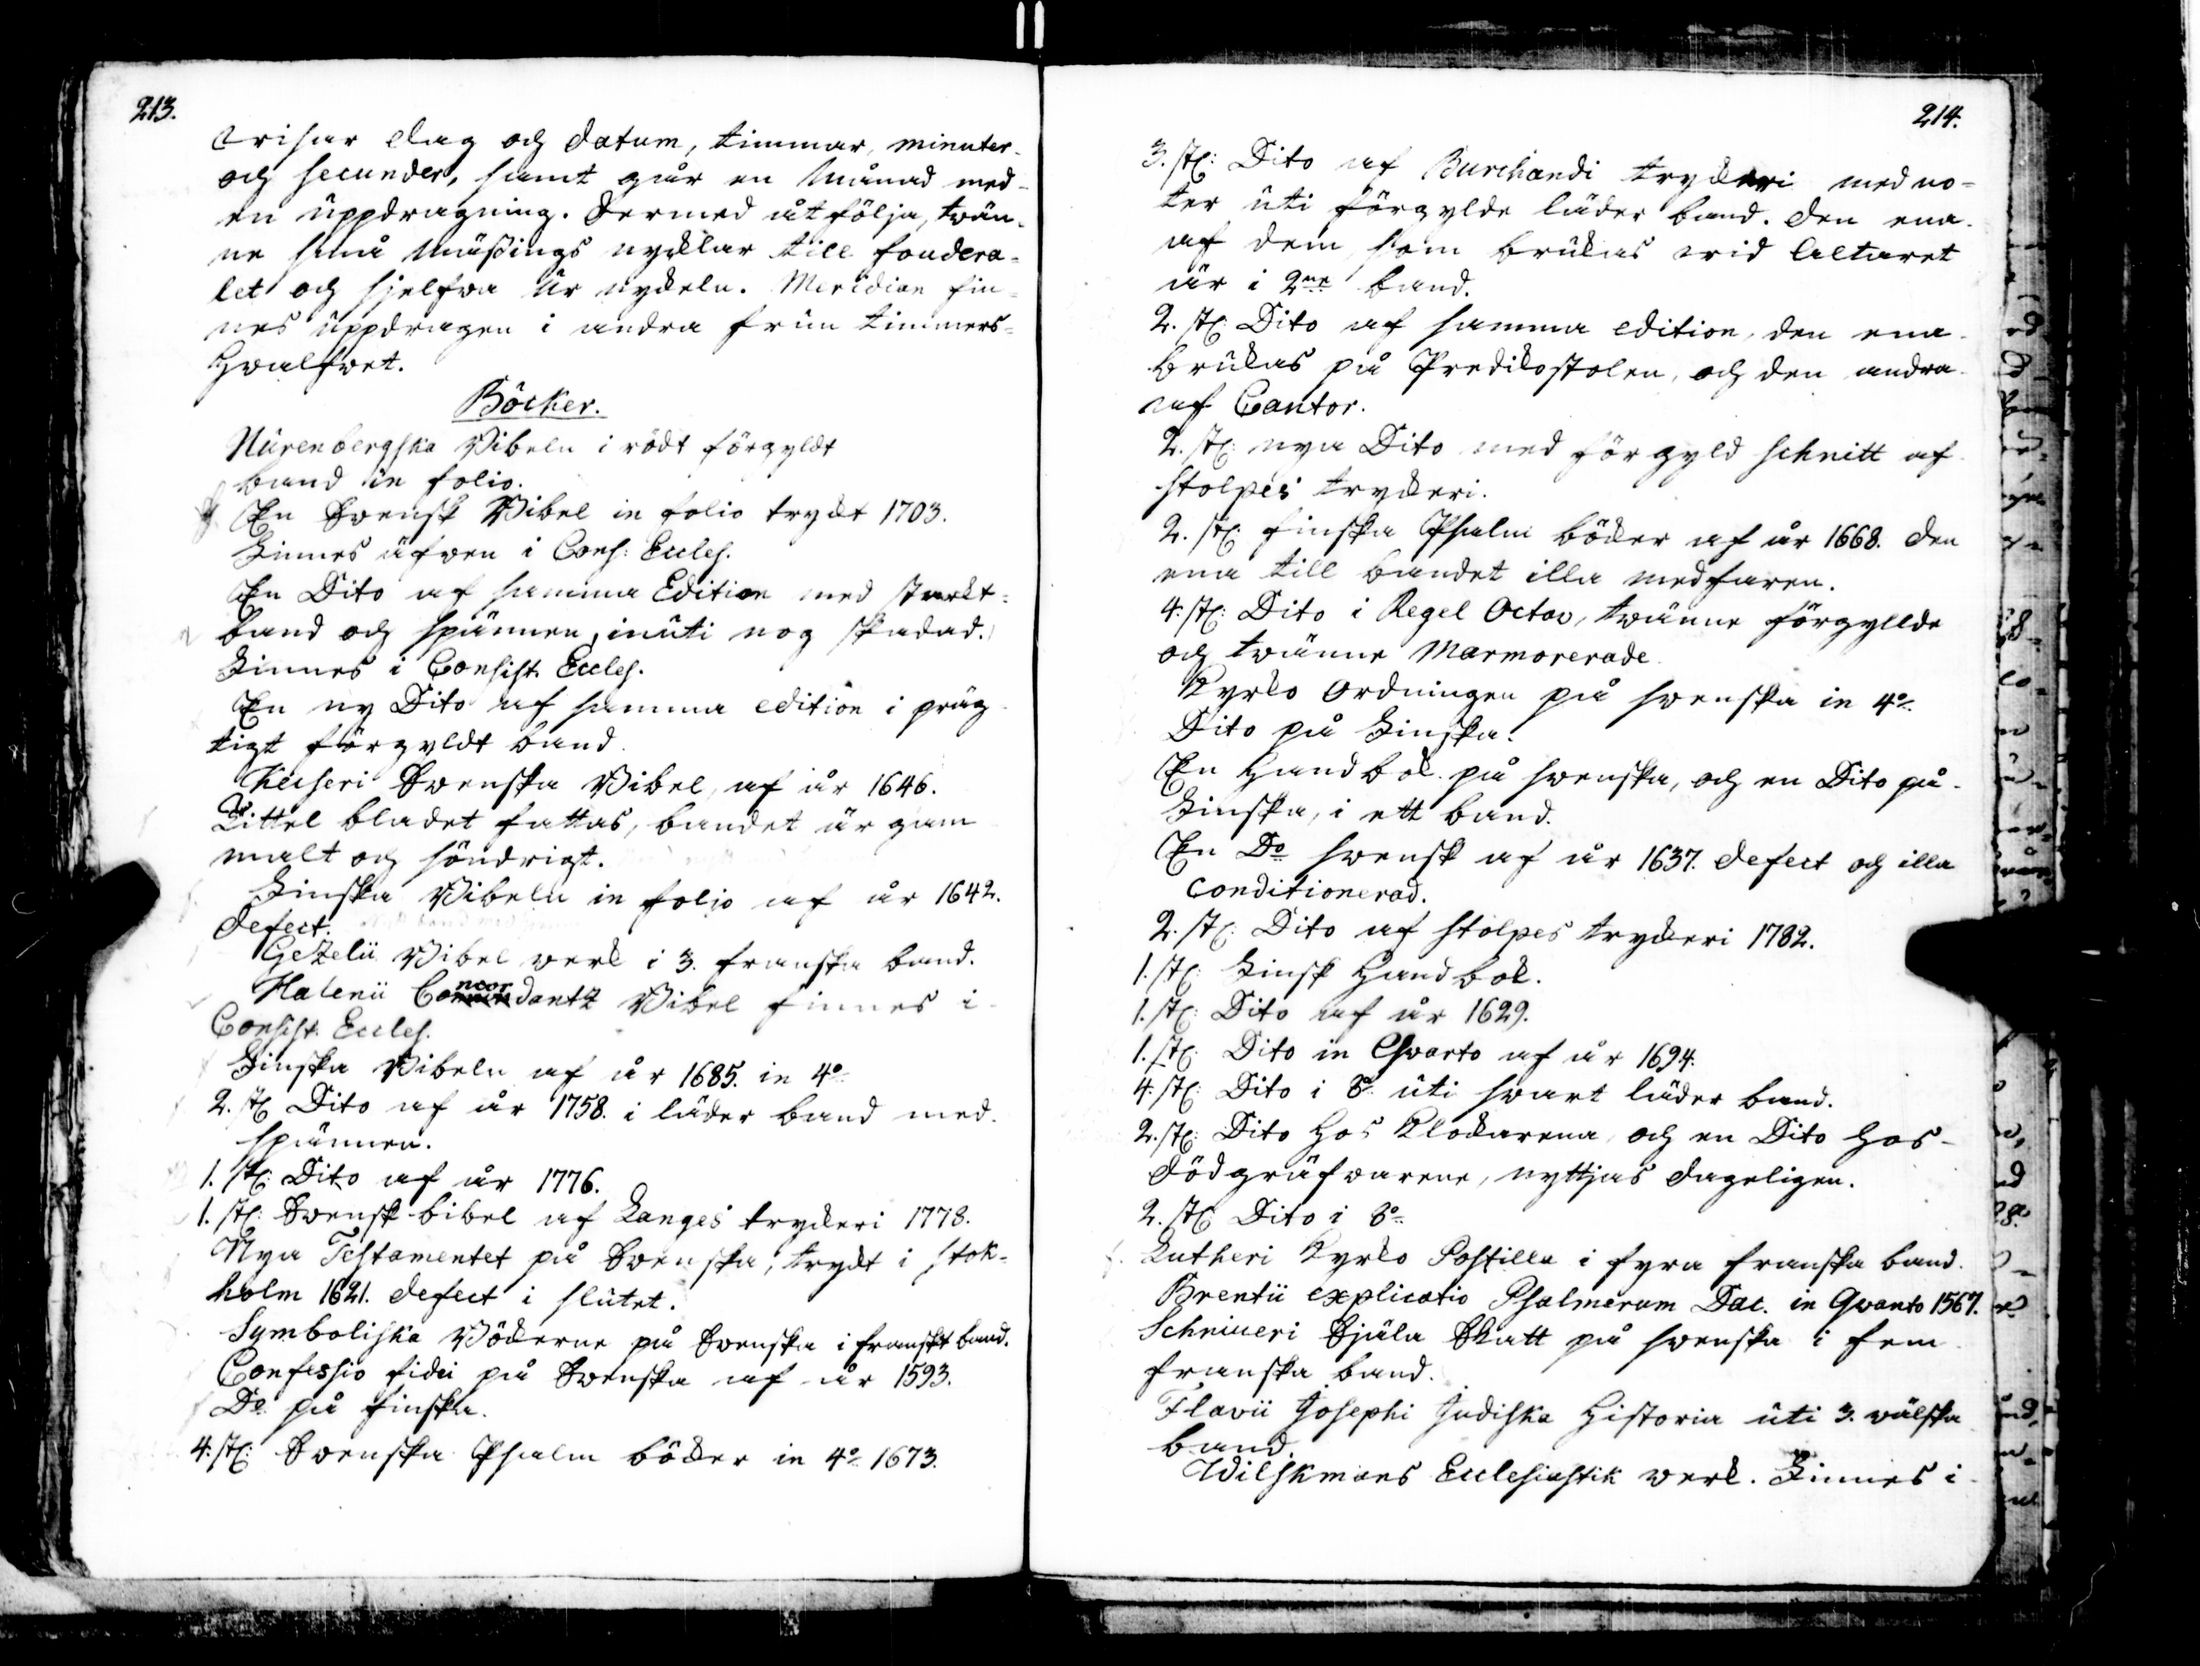 213.
wisar dag och datum, timmar, minuter
och secunder, samt går en Månad med
en uppdragning. Dermed åtfölja, twän-
ne små Mässings nycklar till foudera-
let och sjelfva Ur nyckeln. Meridian fin-
nes uppdragen i andra frun timmers-
Hwalfwet.
Böcker.
Nürenbergska Bibeln i rödt förgyldt
band in folio.
En Swensk Bibel in folio tryckt 1703.
Finnes äfwen i Cons: Eccles.
En Dito af samma Edition med starkt
band och spännen, inuti nog skadad.
Finnes i Consist. Eccles.
En ny Dito af samma edition i präg-
tigt förgyldt band.
Keiseri Swenska Bibel, af år 1646.
Tittel bladet fattas, bandet är gam
malt och söndrigt.
Finska Bibeln in folio af år 1642.
defect.
Gezelii Bibel werk i 3. franska band.
Halenii Concordantz Bibel finnes i
Consist. Eccles.
Finska Bibeln af år 1685. in 4o
2. st: Dito af år 1758. i läder band med
spännen.
1. st: Dito af år 1776.
1. st: Swensk bibel af Langes tryckeri 1778.
Nya Testamentet på Swenska, tryckt i Stok-
holm 1621. defect i slutet.
Symboliska Böckerne på Swenska i franskt band.
Confessio fidei på Swenska af år 1593.
Do på finska.
4. st: Swenska Psalm böcker in 4o 1673.
214.
3. st: Dito af Burchardi tryckeri med no-
ter uti förgylde läder band. den ena
af dem som brukas wid Altaret
är i 2ne band.
2. st: Dito af samma edition, den ena
brukas på Predikostolen, och den andra
af Cantor.
2. st: nya Dito med för gyld schnitt af
Stolpes tryckeri.
2. st: finska Psalm böcker af år 1668. den
ena till bandet illa medfaren.
4. st: Dito i Regel Octav, twänne förgyllde
och twänne Marmorerade
Kyrko Ordningen på swenska in 4o
Dito på Finska.
En Handbok på swenska, och en Dito på
Finska, i ett band.
En Do swensk af år 1637. defect och illa
conditionerad.
2. st: Dito af Stolpes tryckeri 1782.
1. st: Finsk Handbok.
1. st: Dito af år 1629.
1. st: Dito in Qwarto af år 1694.
4. st: Dito i 8o uti swart läder band.
2. st: Dito hos Klockarena, och en Dito hos
dödgräfvarene, nyttjas dageligen.
2. st: Dito i 8o
Lutheri Kyrko Postilla i fyra franska band.
Brentii explicatio Psalmorum Dav. in Qwarto 1567.
Schriveri Själa Skatt på swenska i fem
franska band.
Flavii Josephi Judiska Historia uti 3. wälska
band.
Wilskmans Ecclesiastik werk. Finnes i